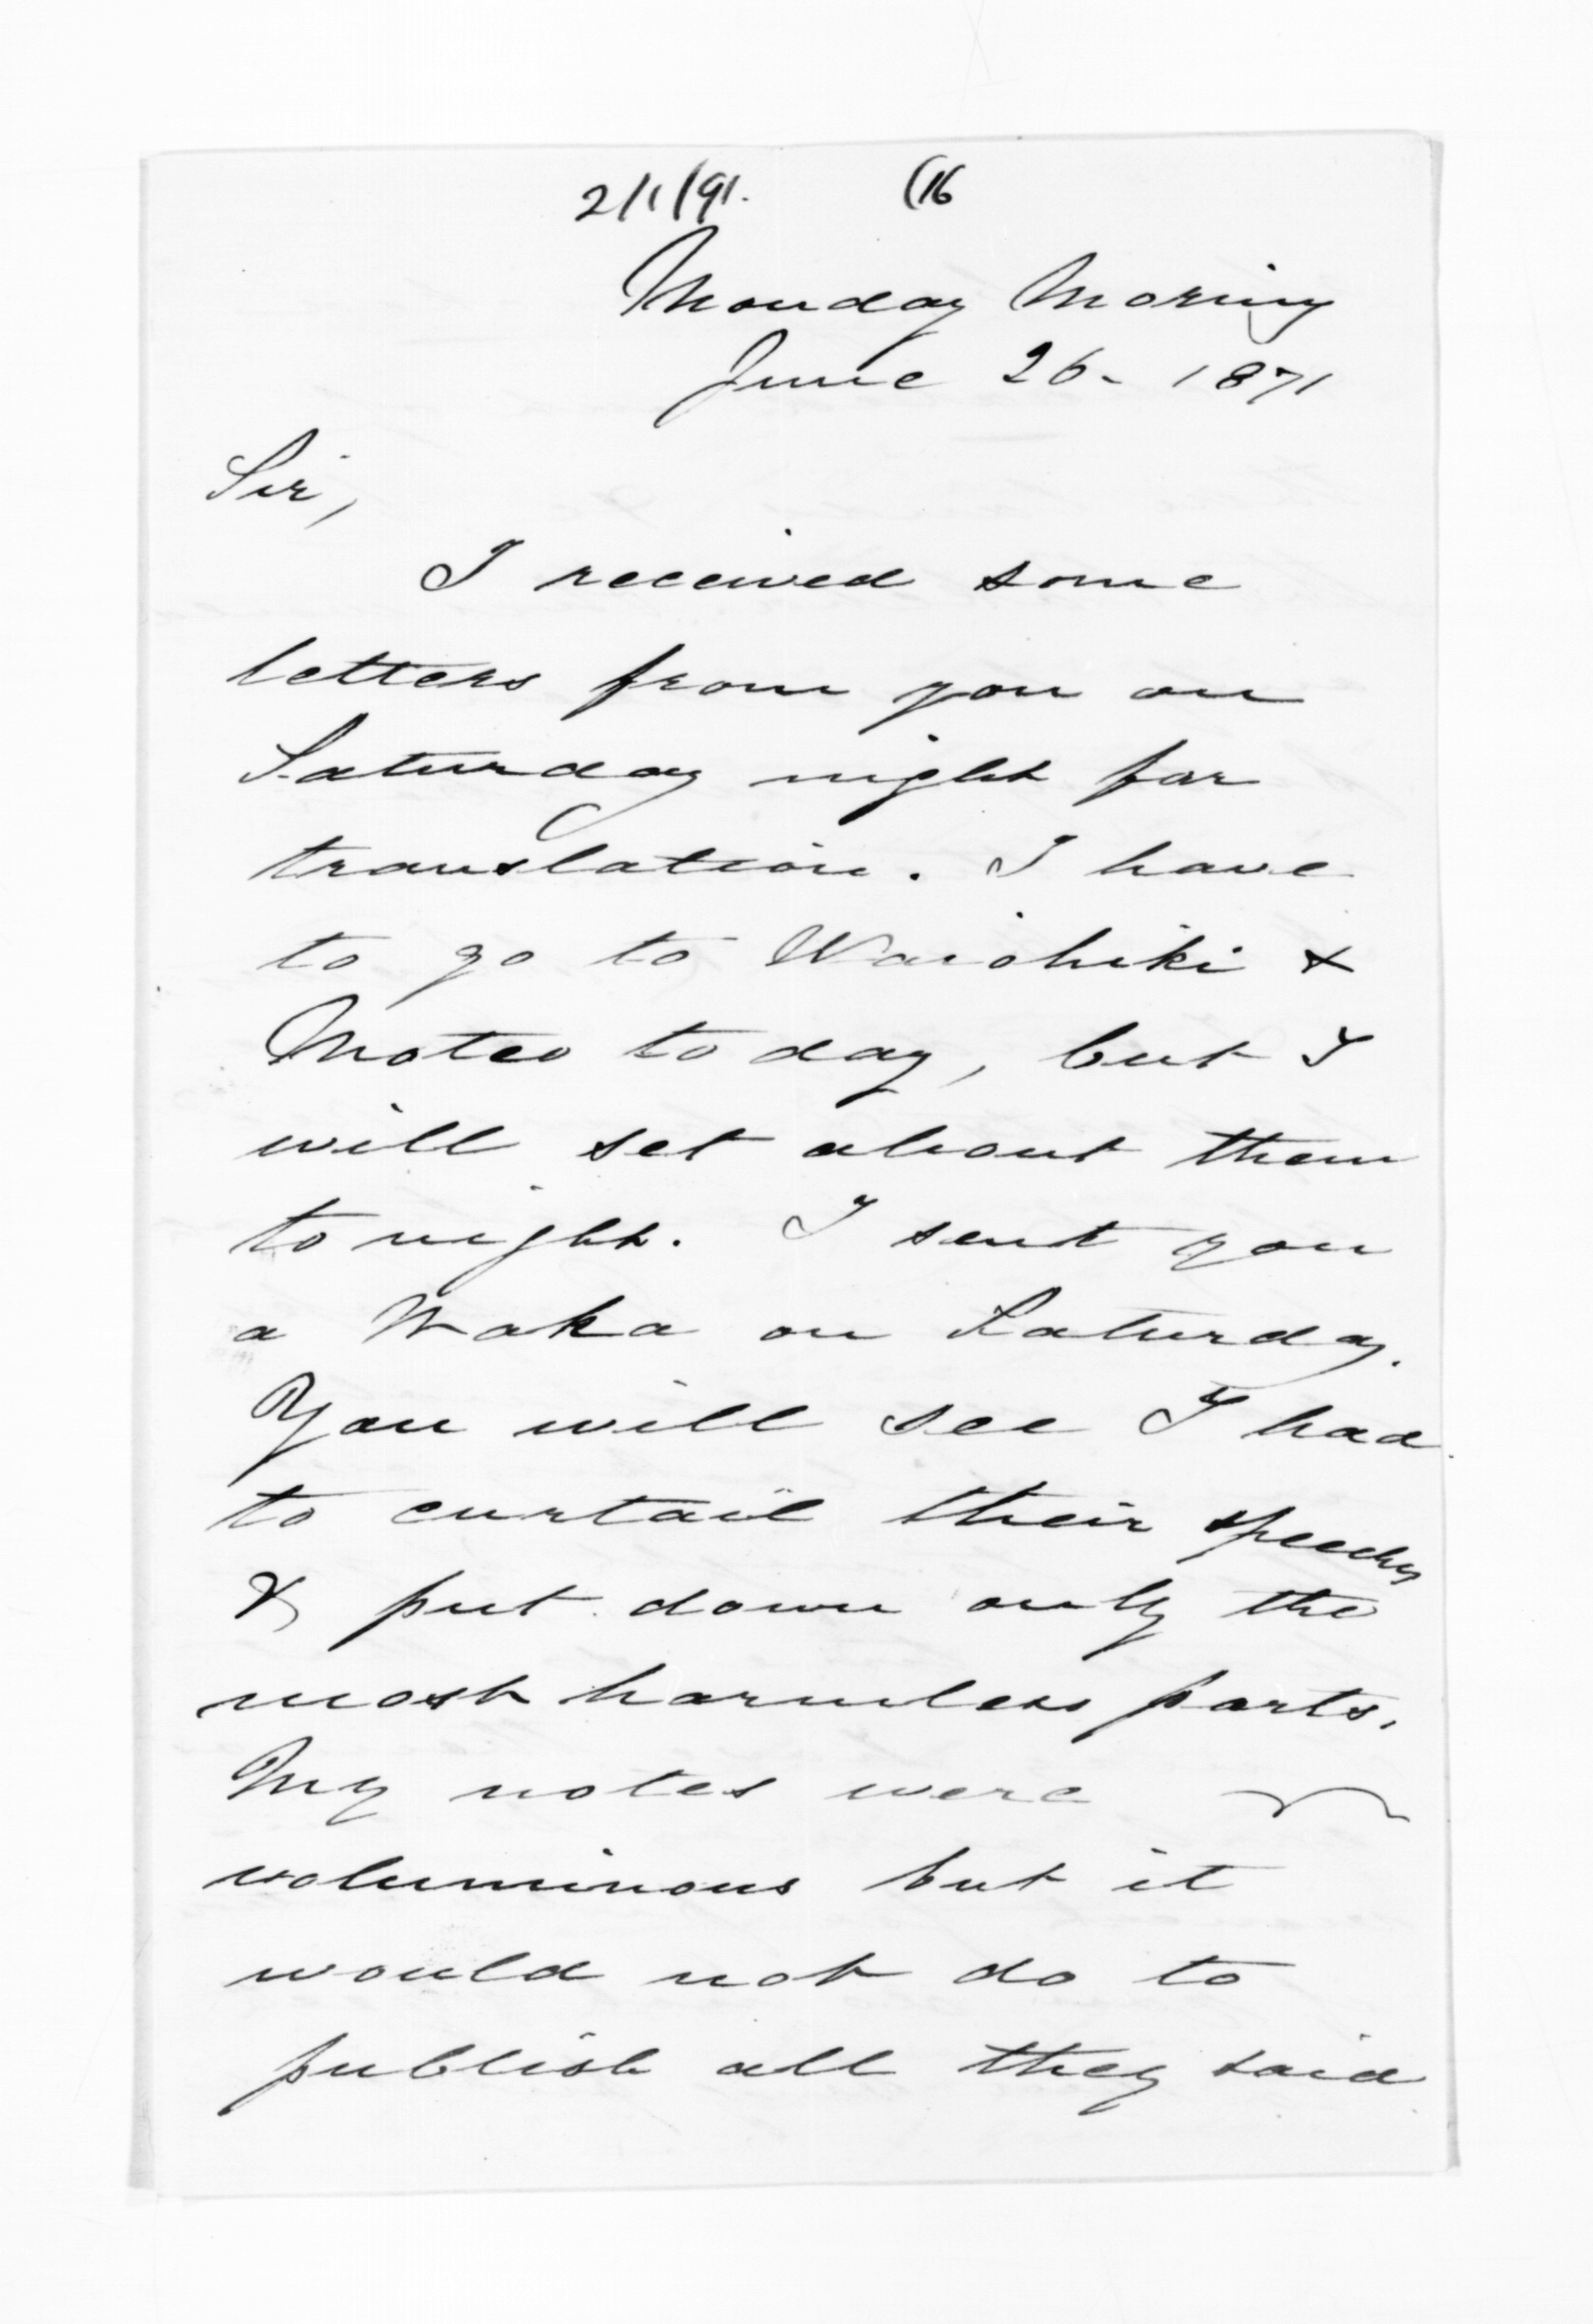 2/1/91. (16
Monday Morning
June 26 - 1871
Sir,
I received some
letters from you on
Saturday night for
translation. I have
to go to Waiohiki &
Moteo to day, but I
will set about them
to night. I sent you
a Waka on Saturday.
You will see I had
to curtail their speeches
& put down only the
most harmless parts.
My notes were
voluminous but it
would not do to
publish all they said